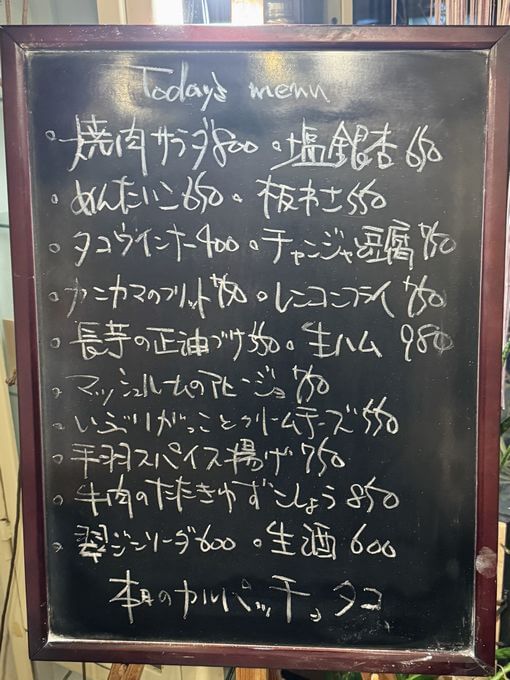 Today's menu
・焼肉サラダ800 ・塩銀杏650
・めんたいこ650 ・板わさ550
・タコウインナー400 ・チャンジャ豆腐750
・カニカマのフリット750 ・レンコンフライ750
・長芋の正油づけ550 ・生ハム 980
・マッシュルームのアヒージョ750
・いぶりがっことクリームチーズ550
・手羽スパイス揚げ750
・牛肉のたたきゆずこしょう850
・翠ジンソーダ600 ・生酒600
本日のカルパッチョ タコ